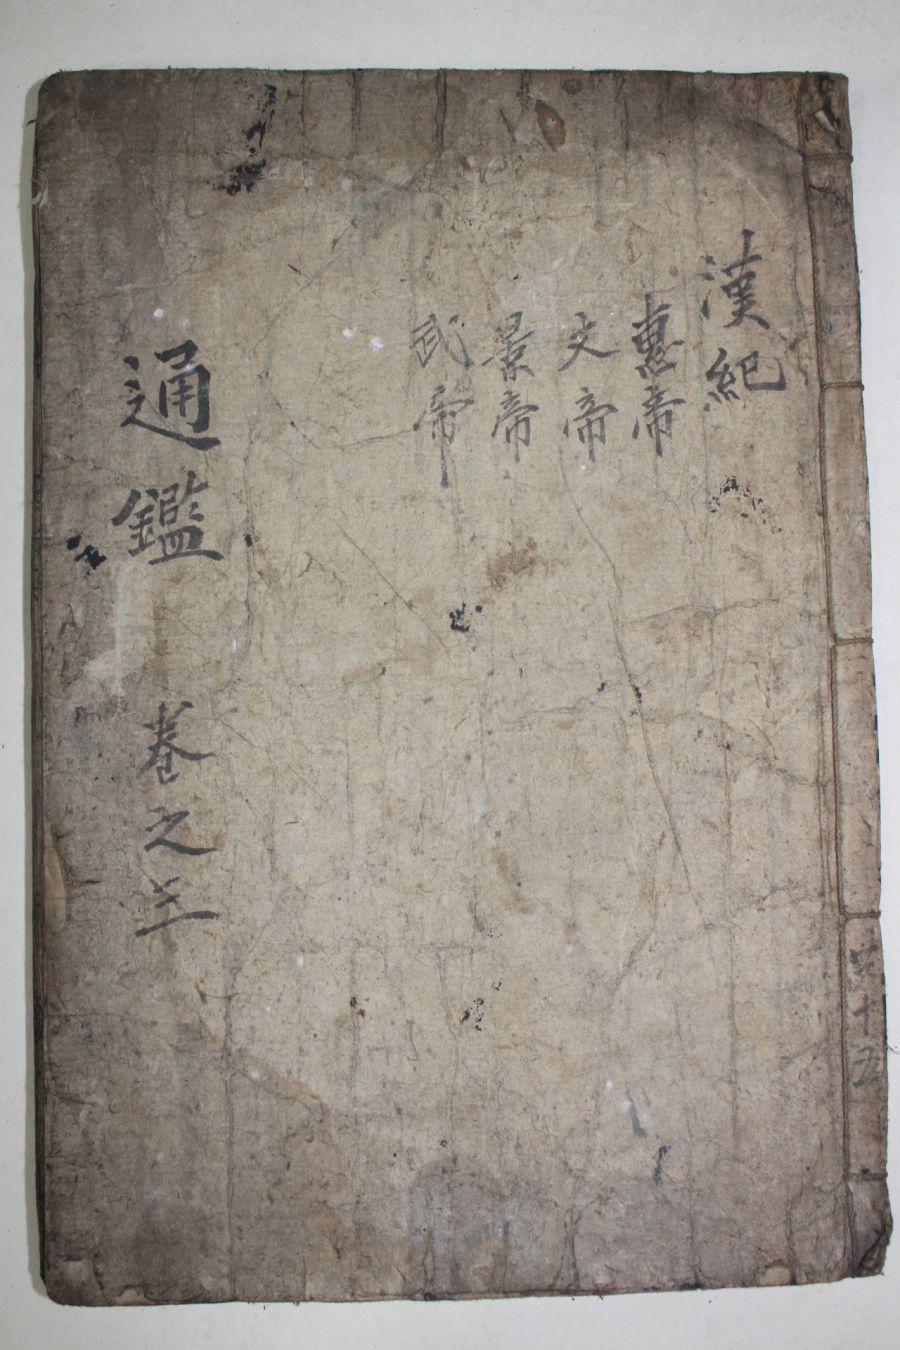 漢紀
惠帝
文帝
景帝
武帝
通鑑 卷之三
共十五